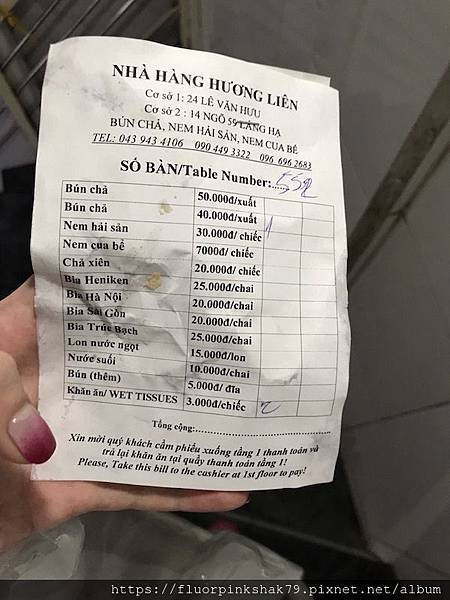 NHÀ HÀNG HƯƠNG LIÊN
Cơ sở 1: 24 LÊ VĂN HƯU
Cơ sở 2 : 14 NGÕ 59 LÁNG HẠ
BÚN CHẢ, NEM HẢI SẢN, NEM CUA BỂ
TEL: 043 943 4106 090 449 3322 096 696 2683
SỐ BÀN/Table Number:......
Bún chả 50.000đ/xuất
Bún chả 40.000đ/xuất 1
Nem hải sản 30.000đ/ chiếc
Nem cua bể 7000đ/ chiếc
Chả xiên 20.000đ/ chiếc
Bia Heniken 25.000đ/chai
Bia Hà Nội 20.000đ/chai
Bia Sài Gòn 20.000đ/chai
Bia Trúc Bạch 25.000đ/chai
Lon nước ngọt 15.000đ/lon
Nước suối 10.000đ/chai
Bún (thêm) 5.000đ/ đĩa
Khăn ăn/ WET TISSUES 3.000đ/chiếc 2
Tổng cộng:....................................
Xin mời quý khách cầm phiếu xuống tầng 1 thanh toán và
trả lại khăn ăn tại quầy thanh toán tầng 1!
Please, Take this bill to the cashier at 1st floor to pay!
https://fluorpinkshak79.pixnet.net/album